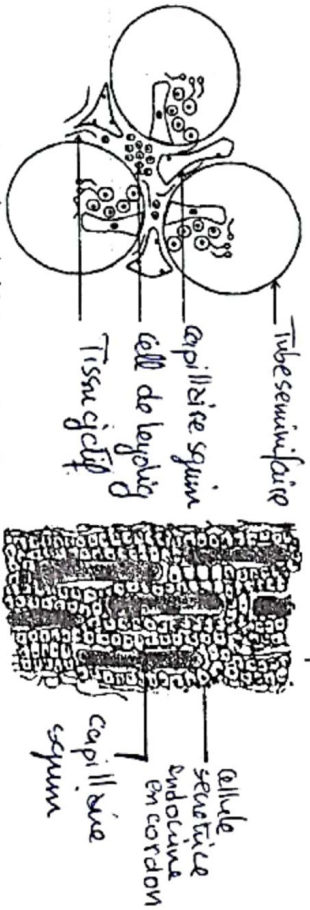 Tube seminifaire
capillaire sguin
Cell de leydig
Tissu cjctif
cellule
secretrice
endocrine
en cordon
capillaire
sguin